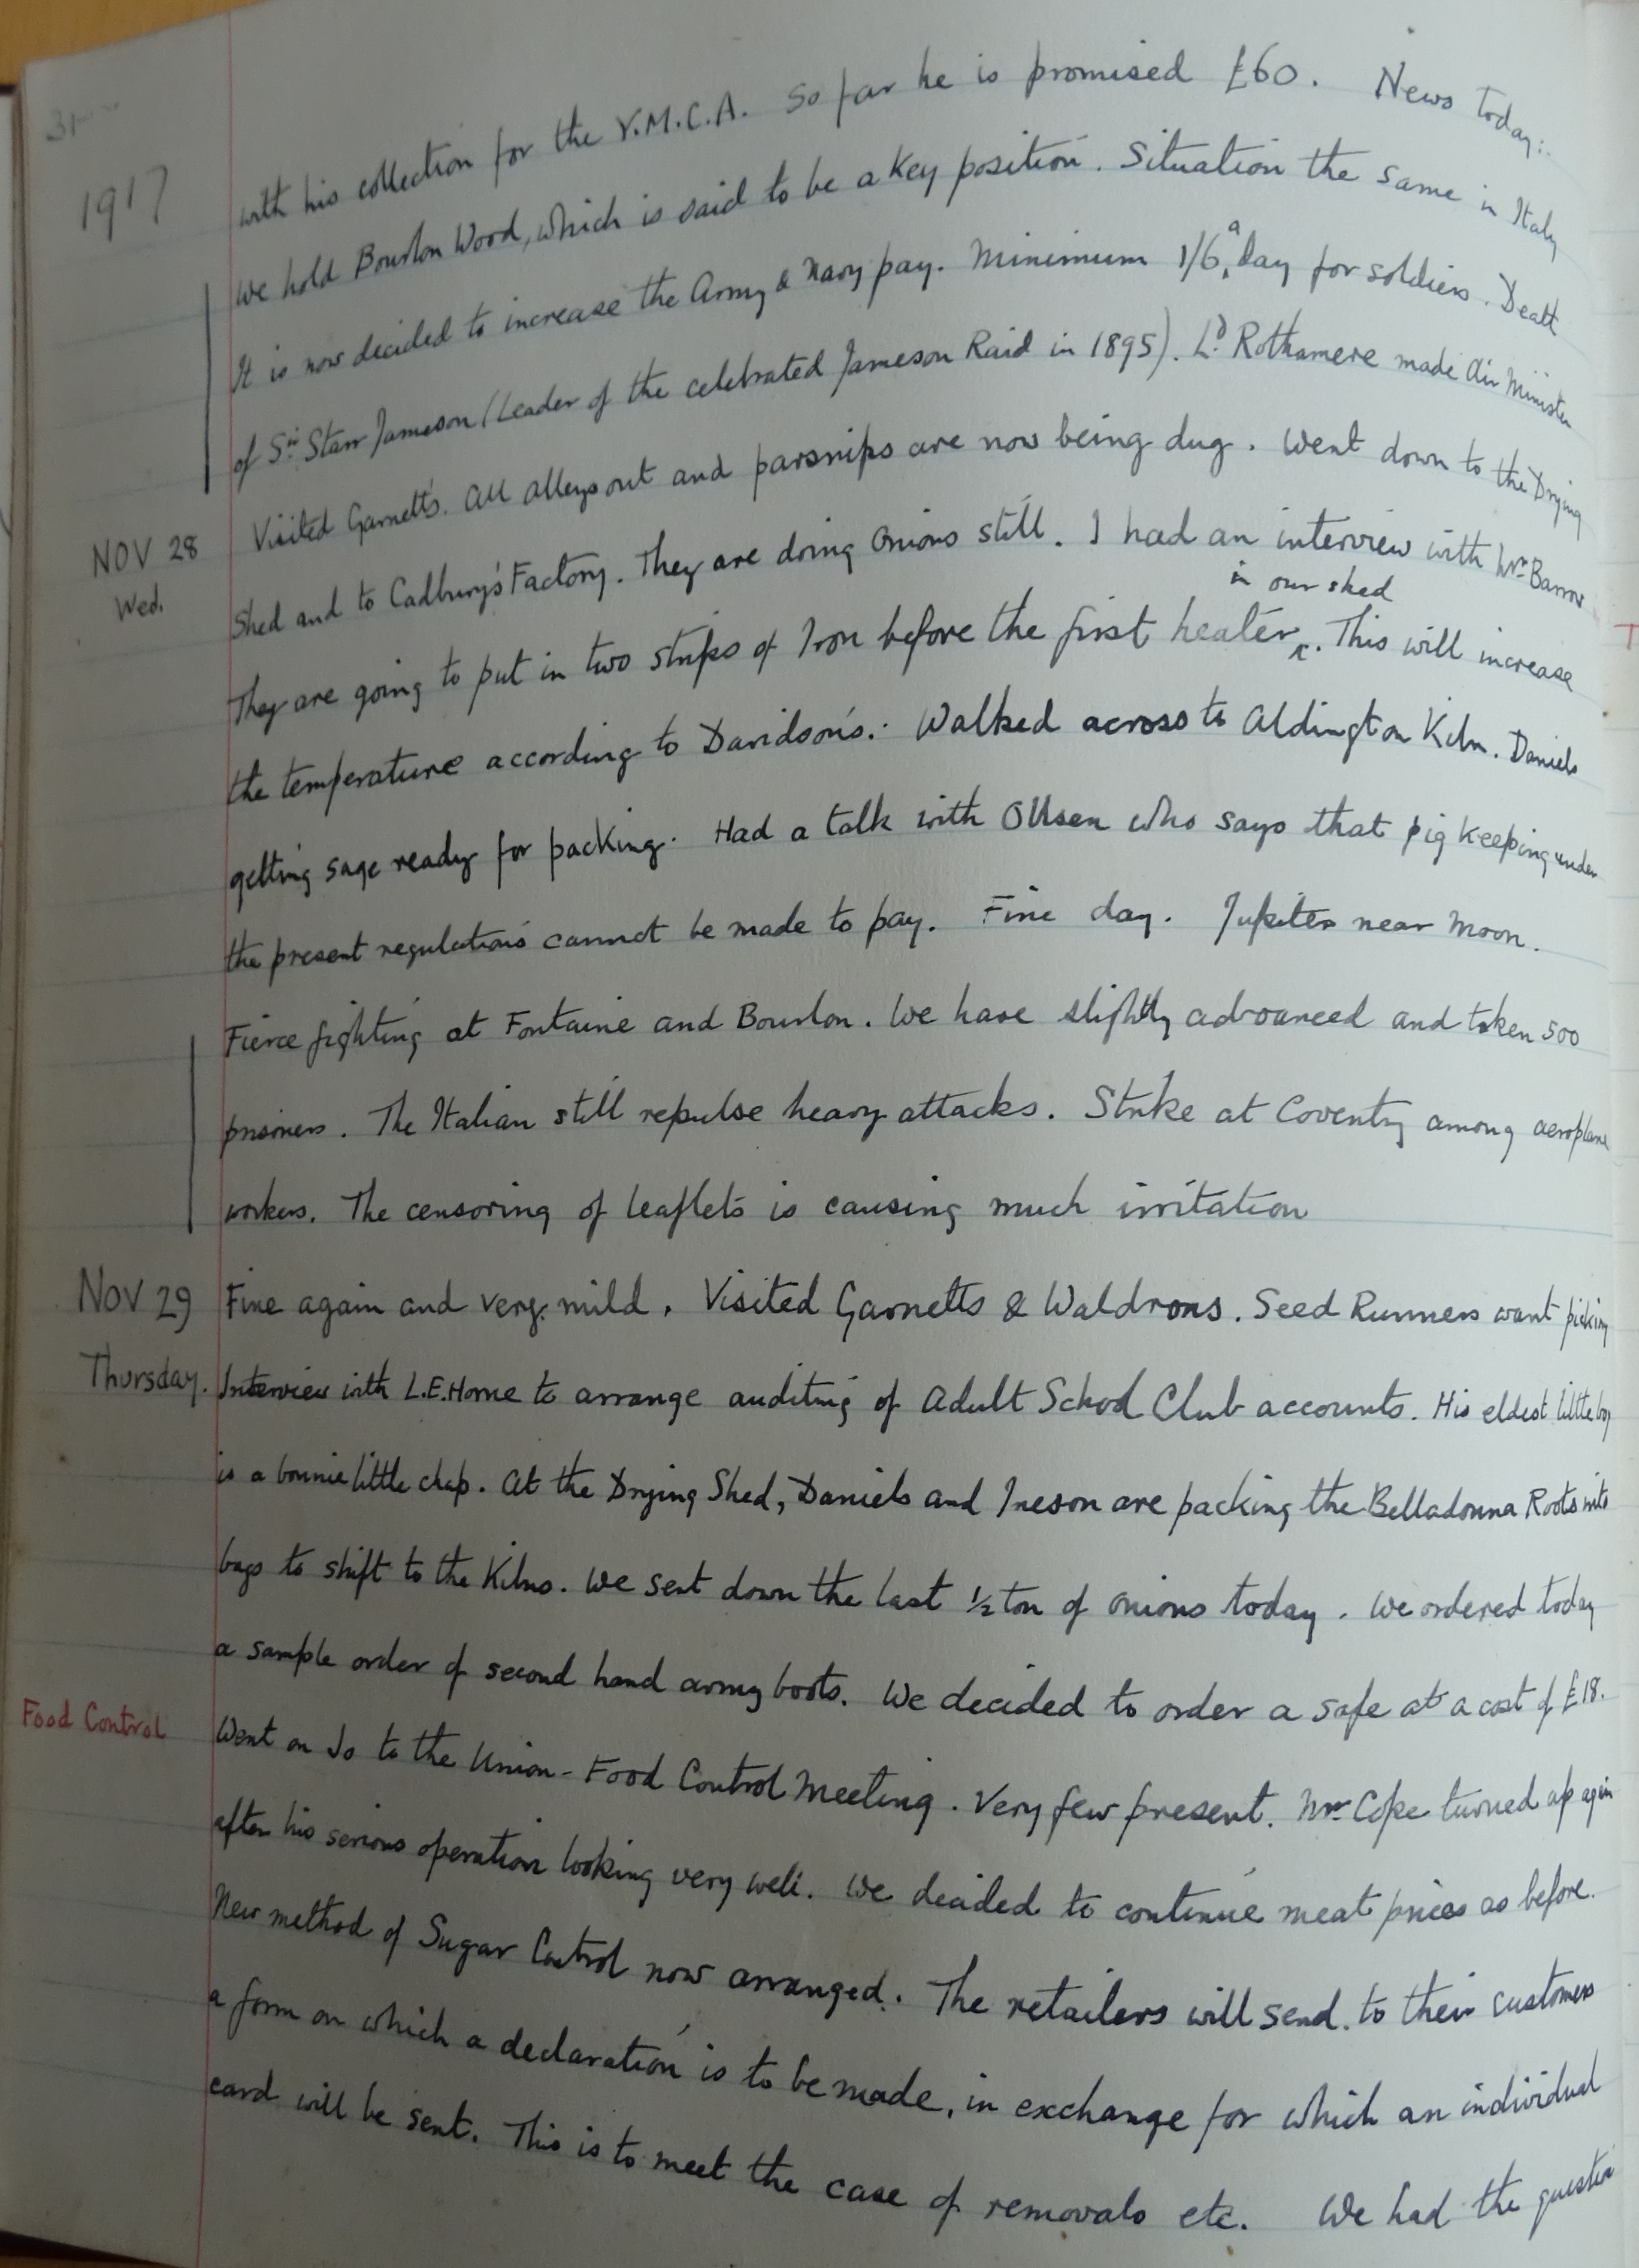 1917
with his collection for the Y.M.C.A. So far he is promised £60. News today:
We hold Bourlon Wood, which is said to be a key position. Situation the same in Italy
It is now decided to increase the Army & Navy pay. Minimum 1/6 a day for soldiers. Death
of Sir Starr Jameson (Leader of the celebrated Jameson Raid in 1895). Ld. Rothamere made Air Minister
NOV 28
Wed.
Visited Garnett's. All alleys out and parsnips are now being dug. Went down to the Drying
Shed and to Cadbury's Factory. They are doing Onions still. I had an interview with Mr Barrow
They are going to put in two strips of Iron before the first heater in our shed. This will increase
the temperature according to Davidson's. Walked across to Aldington Kiln. Daniels
getting sage ready for packing. Had a talk with Ollsen who says that pig keeping under
the present regulations cannot be made to pay. Fine day. Jupiter near Moon.
Fierce fighting at Fontaine and Bourlon. We have slightly advanced and taken 500
prisoners. The Italian still repulse heavy attacks. Strike at Coventry among aeroplane
workers. The censoring of leaflets is causing much irritation
NOV 29
Thursday.
Fine again and very mild. Visited Garnetts & Waldrons. Seed Runners want picking
Interview with L.E. Horne to arrange auditing of Adult School Club accounts. His eldest little boy
is a bonnie little chap. At the Drying Shed, Daniels and Ineson are packing the Belladonna Roots into
bags to shift to the Kilns. We sent down the last ½ ton of onions today. We ordered today
a sample order of second hand army boots. We decided to order a safe at a cost of £18.
Food Control
Went on Jo to the Union - Food Control Meeting. Very few present. Mr Cope turned up again
after his serious operation looking very well. We decided to continue meat prices as before.
New method of Sugar Control now arranged. The retailers will send to their customers
a form on which a declaration is to be made, in exchange for which an individual
card will be sent. This is to meet the case of removals etc. We had the question